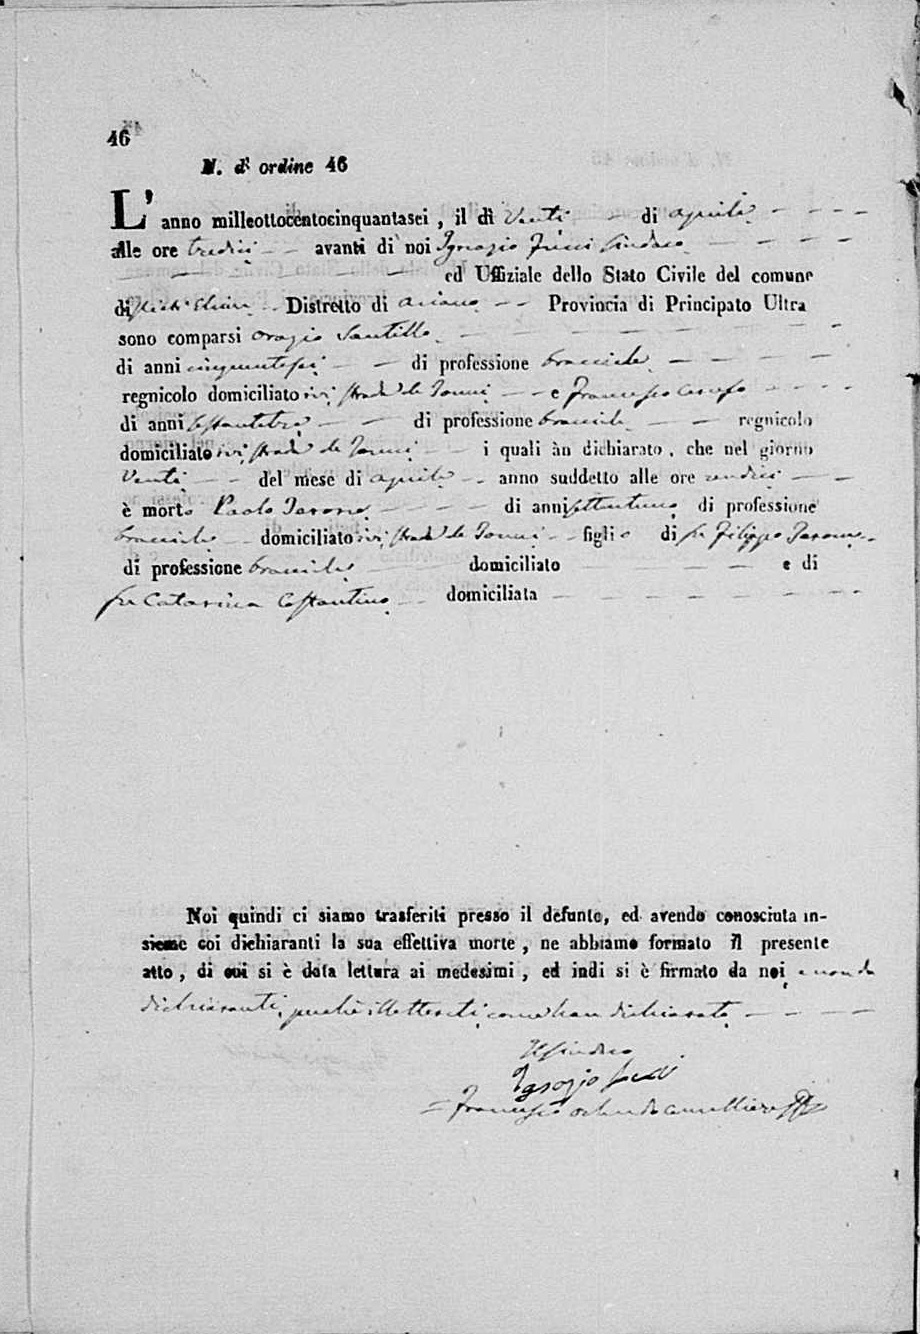 46
N. d' ordine 46
L' anno milleottocentocinquantasei, il dì Venti di aprile
alle ore tredici avanti di noi Ignazio Sindaco
ed Uffiziale dello Stato Civile del comune
di Distretto di Ariano Provincia di Principato Ultra
sono comparsi Orazio Santillo
di anni cinquantasei di professione bracciale
regnicolo domiciliato ivi strada de e Francesco
di anni di professione bracciale regnicolo
domiciliato ivi strada de i quali àn dichiarato, che nel giorno
Venti del mese di aprile anno suddetto alle ore undici
è morto Paolo Iarone di anni settantuno di professione
bracciale domiciliato ivi strada de figlio di fu Filippo Iarone
di professione bracciale domiciliato e di
fu Catarina Costantino domiciliata
Noi quindi ci siamo trasferiti presso il defunto, ed avendo conosciuta in-
sieme coi dichiaranti la sua effettiva morte, ne abbiamo formato il presente
atto, di cui si è data lettura ai medesimi, ed indi si è firmato da noi, e non da
dichiaranti, perchè illetterati come han dichiarato
Il Sindaco
Ignazio
Francesco cancelliere